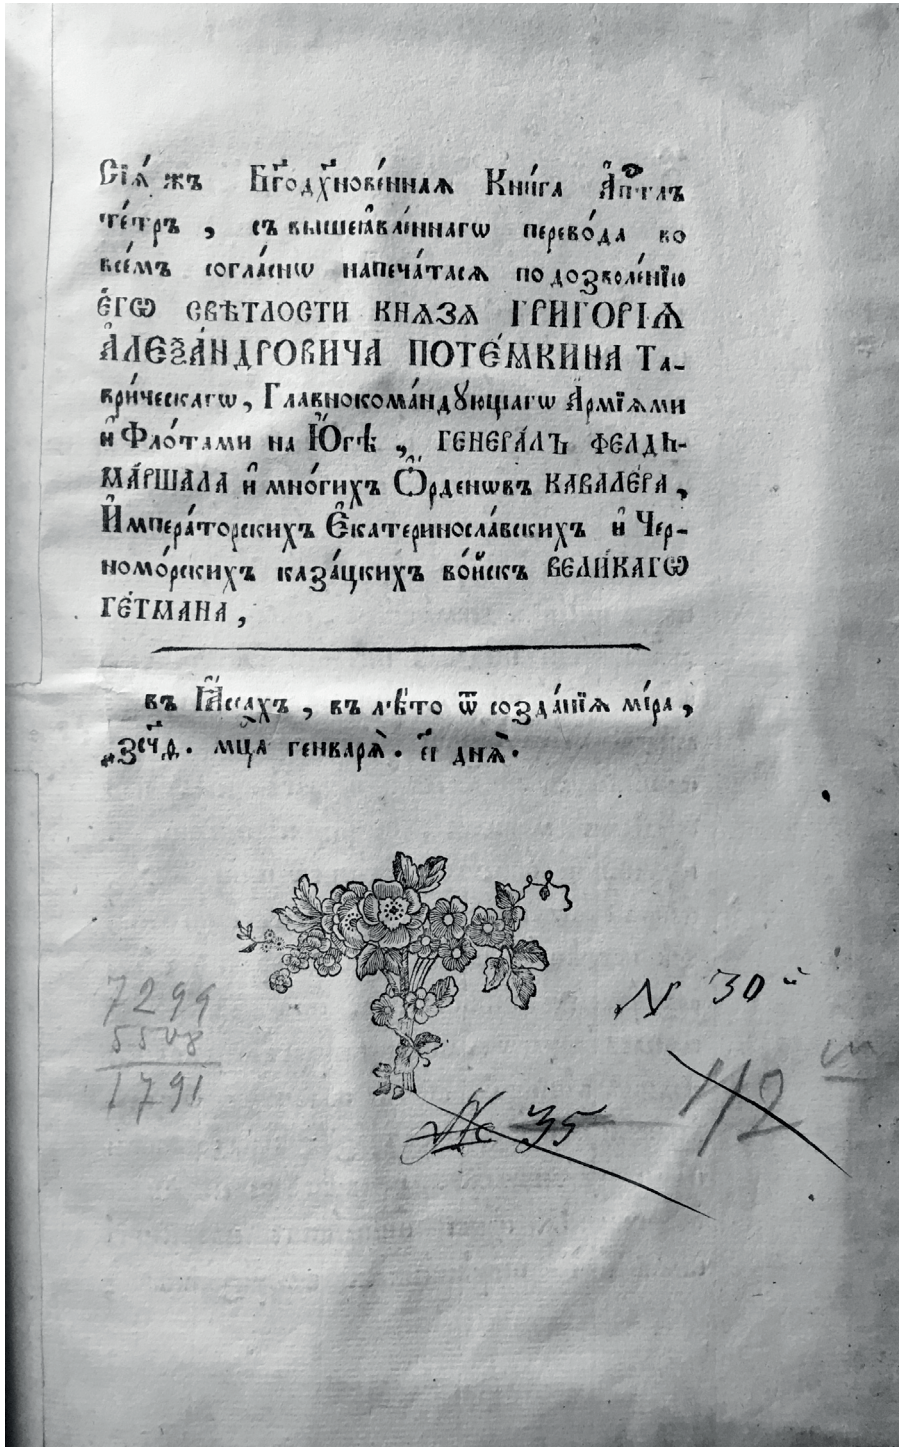 Сїѧ́ жъ Бг҃одх҃нове́ннаѧ Кни́га А҆пⷭ҇лъ
те́тръ , съ вышеѩ҆вле́ннагѡ перево́да ко
все́мъ согла́снѡ напеча́тасѧ по дозволе́нїю
є҆гѡ̀ СВѢТЛОСТИ КНѦЗѦ ГРИГОРІѦ
А҆ЛЕѮА́НДРОВИЧА ПОТЕ́МКИНА Та-
ври́ческагѡ , Главнокома́ндꙋющагѡ А҆рмїѧми
и҆ Фло́тами на Ю҆́гѣ , ГЕНЕРА́ЛЪ ФЕЛДЬ-
МА́РШАЛА и҆ мно́гихъ Ѻ҆́рденѡвъ КАВАЛЕ́РА ,
И҆мпера́торскихъ Є҆катериносла́вскихъ и҆ Чер-
номо́рскихъ каза́цкихъ во́йскъ ВЕЛИ́КАГѠ
ГЕ́ТМАНА ,
въ Ꙗ҆́ссахъ , въ лѣ́то ѿ созда́нїѧ мі́ра ,
҂зсч҃ѳ. мц҃а генварѧ̀. є҃і днѧ̀.
7299
5508
1791
N 30й
112
№ 35